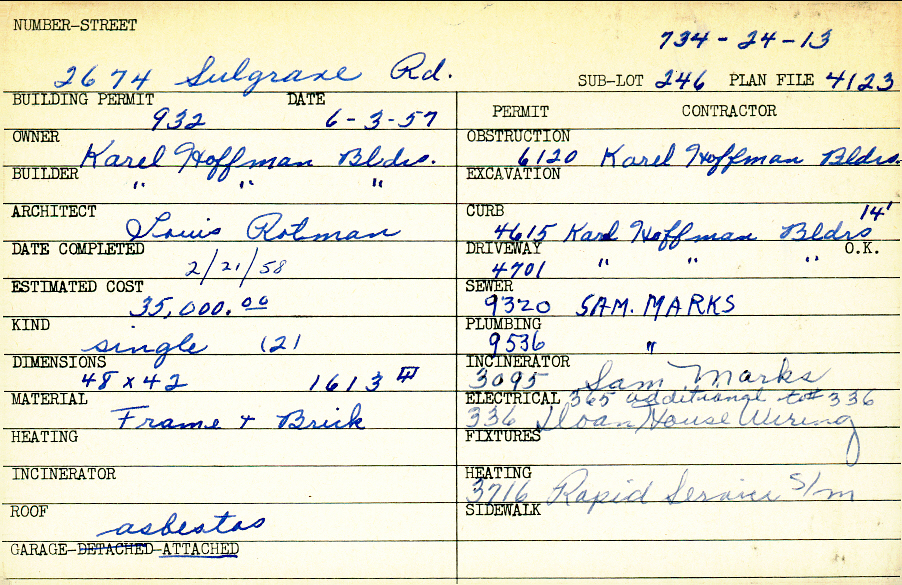 NUMBER-STREET
734-24-13
2674 Sulgrave Rd.
SUB-LOT 246 PLAN FILE 4123
BUILDING PERMIT DATE
932 6-3-57
OWNER
Karel Hoffman Bldrs.
BUILDER
" " "
ARCHITECT
Louis Rotman
DATE COMPLETED
2/21/58
ESTIMATED COST
35,000.00
KIND
single (2)
DIMENSIONS
48 x 42 1613
MATERIAL
Frame + Brick
HEATING
INCINERATOR
ROOF
asbestos
GARAGE-DETACHED-ATTACHED
PERMIT CONTRACTOR
OBSTRUCTION
6120 Karel Hoffman Bldrs.
EXCAVATION
CURB 14'
4615 Karl Hoffman Bldrs
DRIVEWAY O.K.
4701 " " "
SEWER
9320 SAM. MARKS
PLUMBING
9536 "
INCINERATOR
3095 Sam Marks
ELECTRICAL 365 additional to # 336
336 Sloan House Wiring
FIXTURES
HEATING
3716 Rapid Service S/m
SIDEWALK